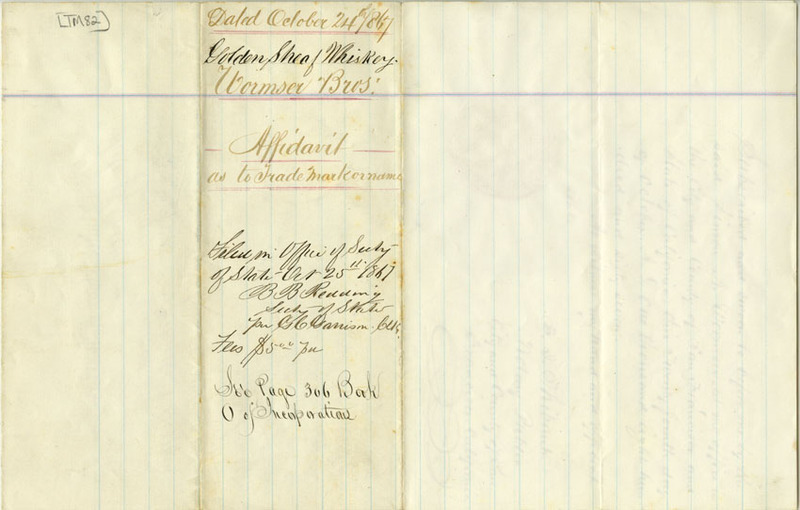 [TM82]
Dated October 24th 1867
Golden Sheaf Whiskey.
Wormser Bros.
Affidavit
as to Trade Mark or name
Filed in Office of Secty
of State Oct 25th 1867
B B Redding
Secty of State
per Garrison. Clk.
Fees $5.00 pd
See Page 306 Book
O of Incorporations